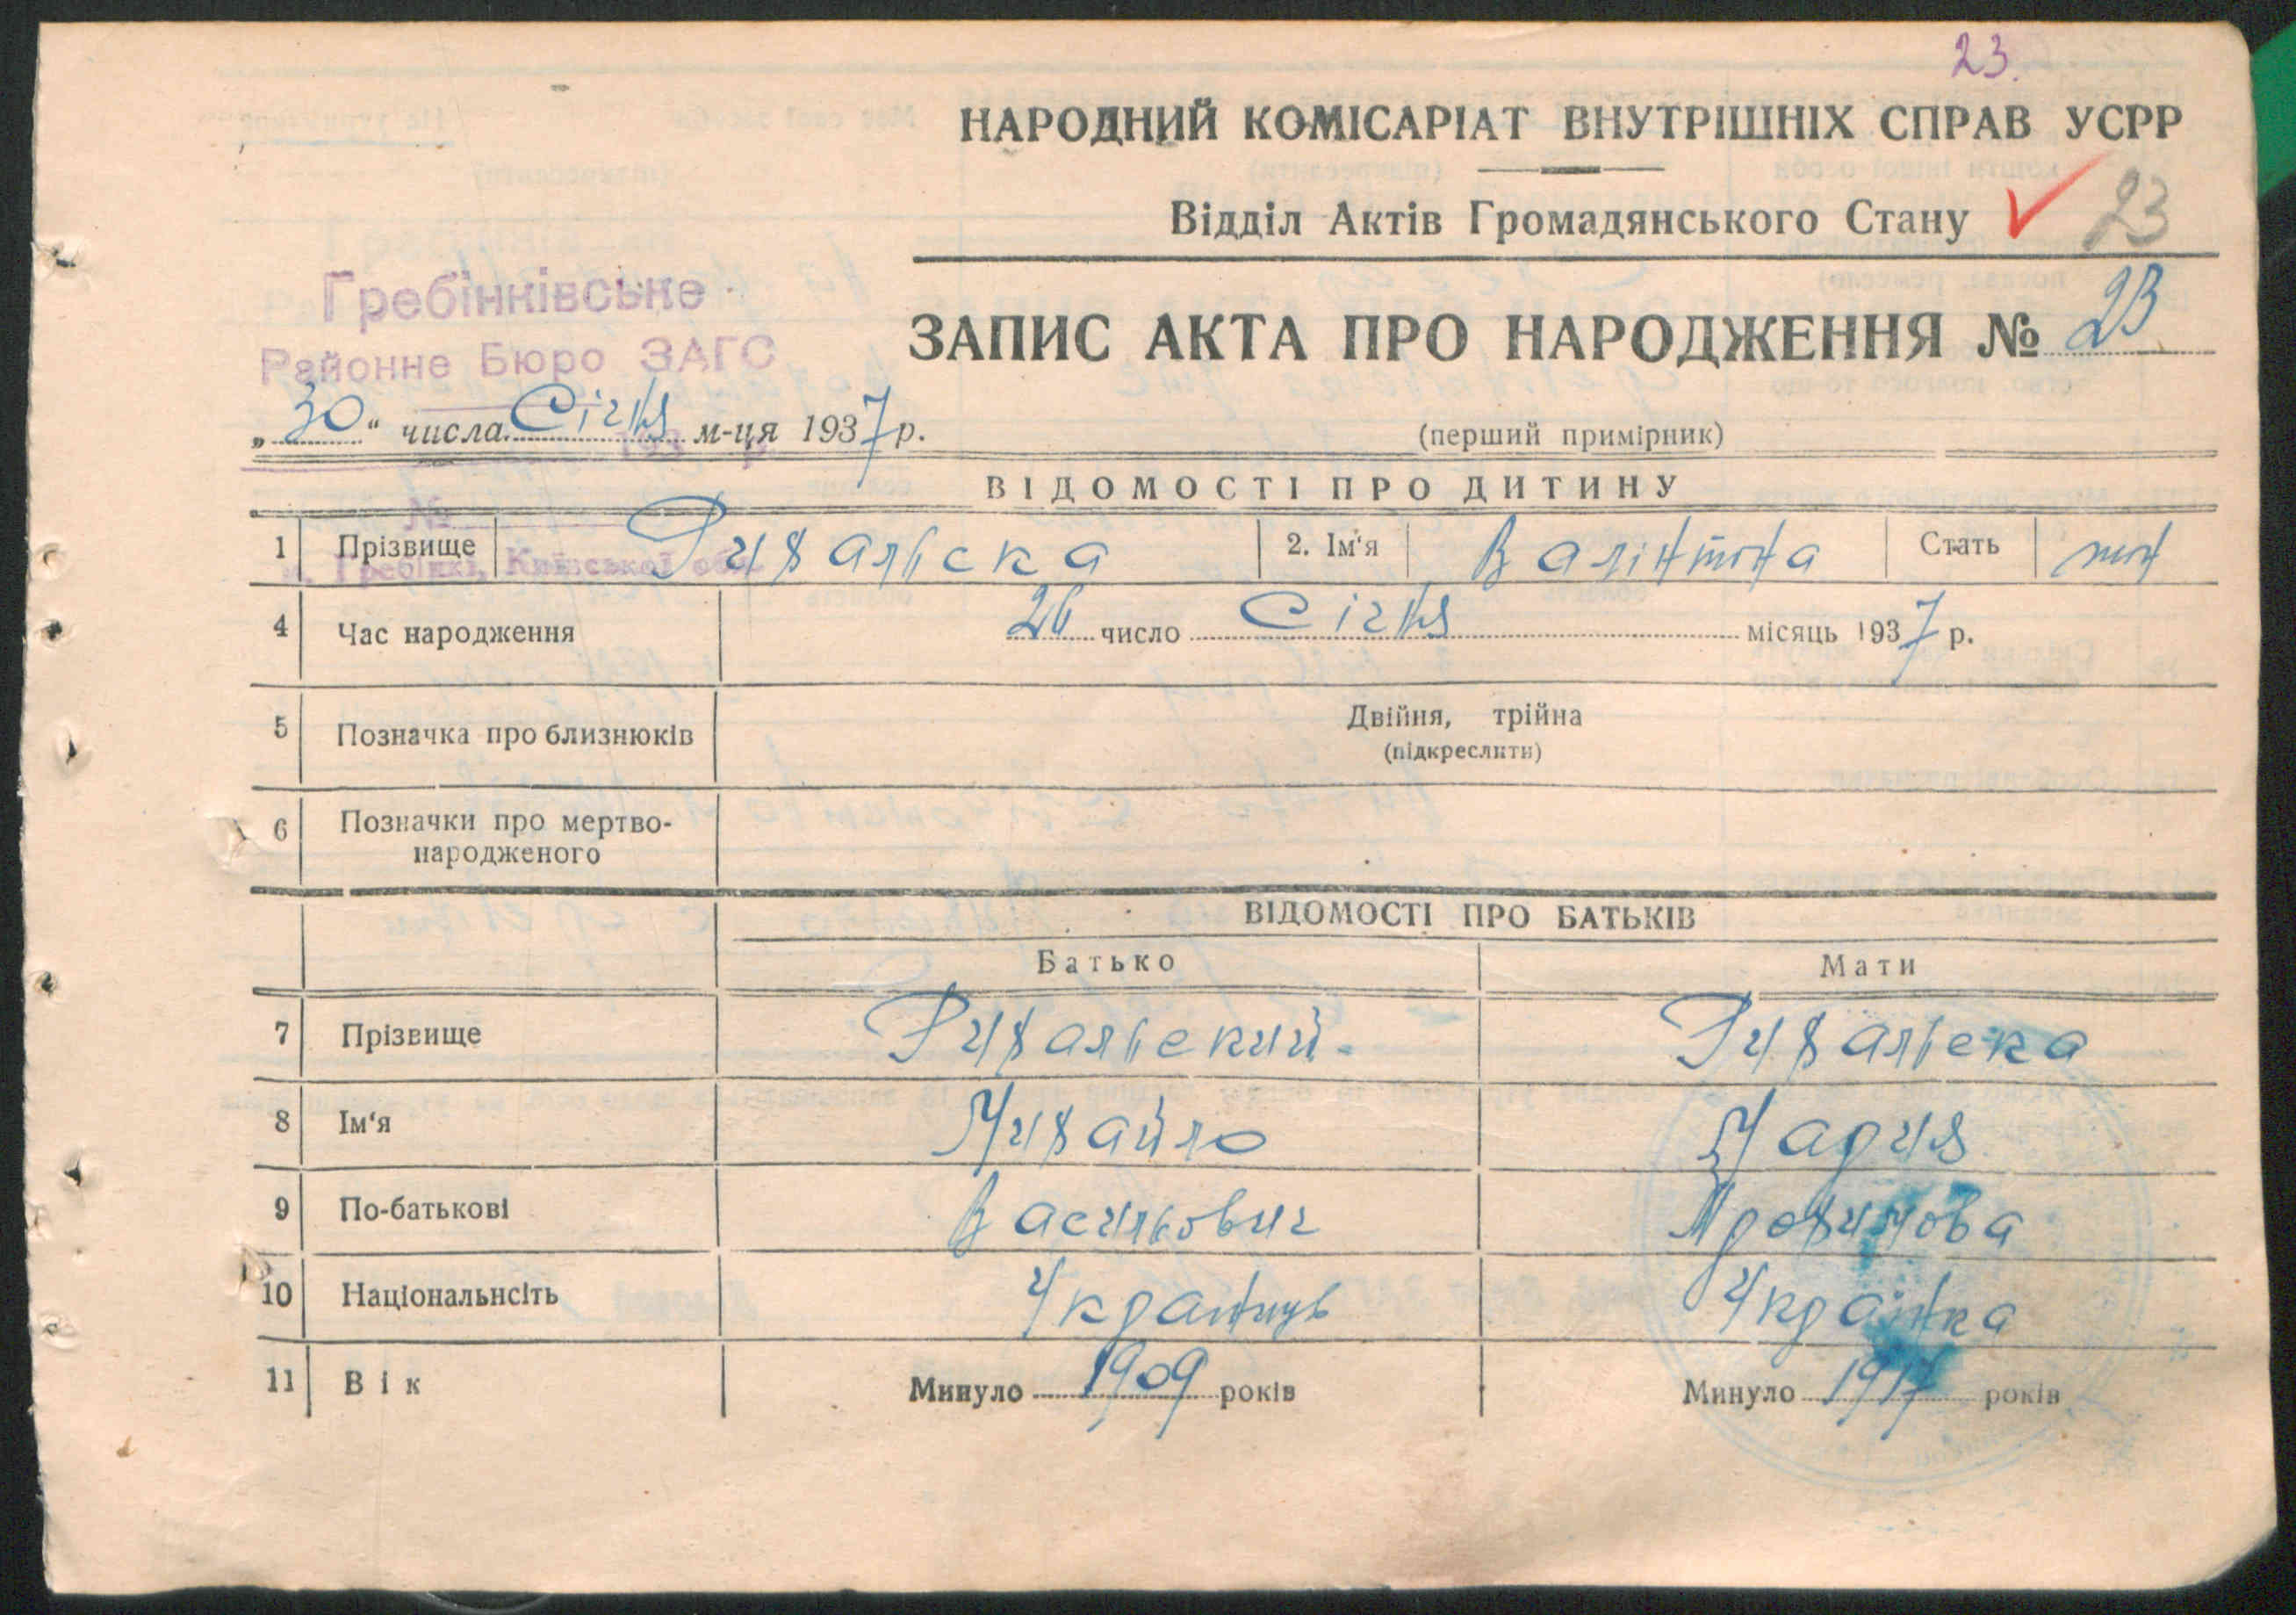 23.
НАРОДНИЙ КОМІСАРІАТ ВНУТРІШНІХ СПРАВ УСРР
Відділ Актів Громадянського Стану 23
Гребінківське
Районне Бюро ЗАГС
ЗАПИС АКТА ПРО НАРОДЖЕННЯ № 23
„30" числа Січня м-ця 1937 р.
(перший примірник)
ВІДОМОСТІ ПРО ДИТИНУ
№
1 Прізвище Рихальска 2. Ім'я Валінтина Стать жін
м. Гребінкі, Київської обл.
4 Час народження 26 число Січня місяць 1937 р.
5 Позначка про близнюків Двійня, трійна
(підкреслити)
6 Позначки про мертво-
народженого
ВІДОМОСТІ ПРО БАТЬКІВ
Батько Мати
7 Прізвище Рихальский Рихальска
8 Ім'я Михайло Мария
9 По-батькові Васильович
10 Національнсіть Українць Українка
11 Вік Минуло 1909 років Минуло 1917 років